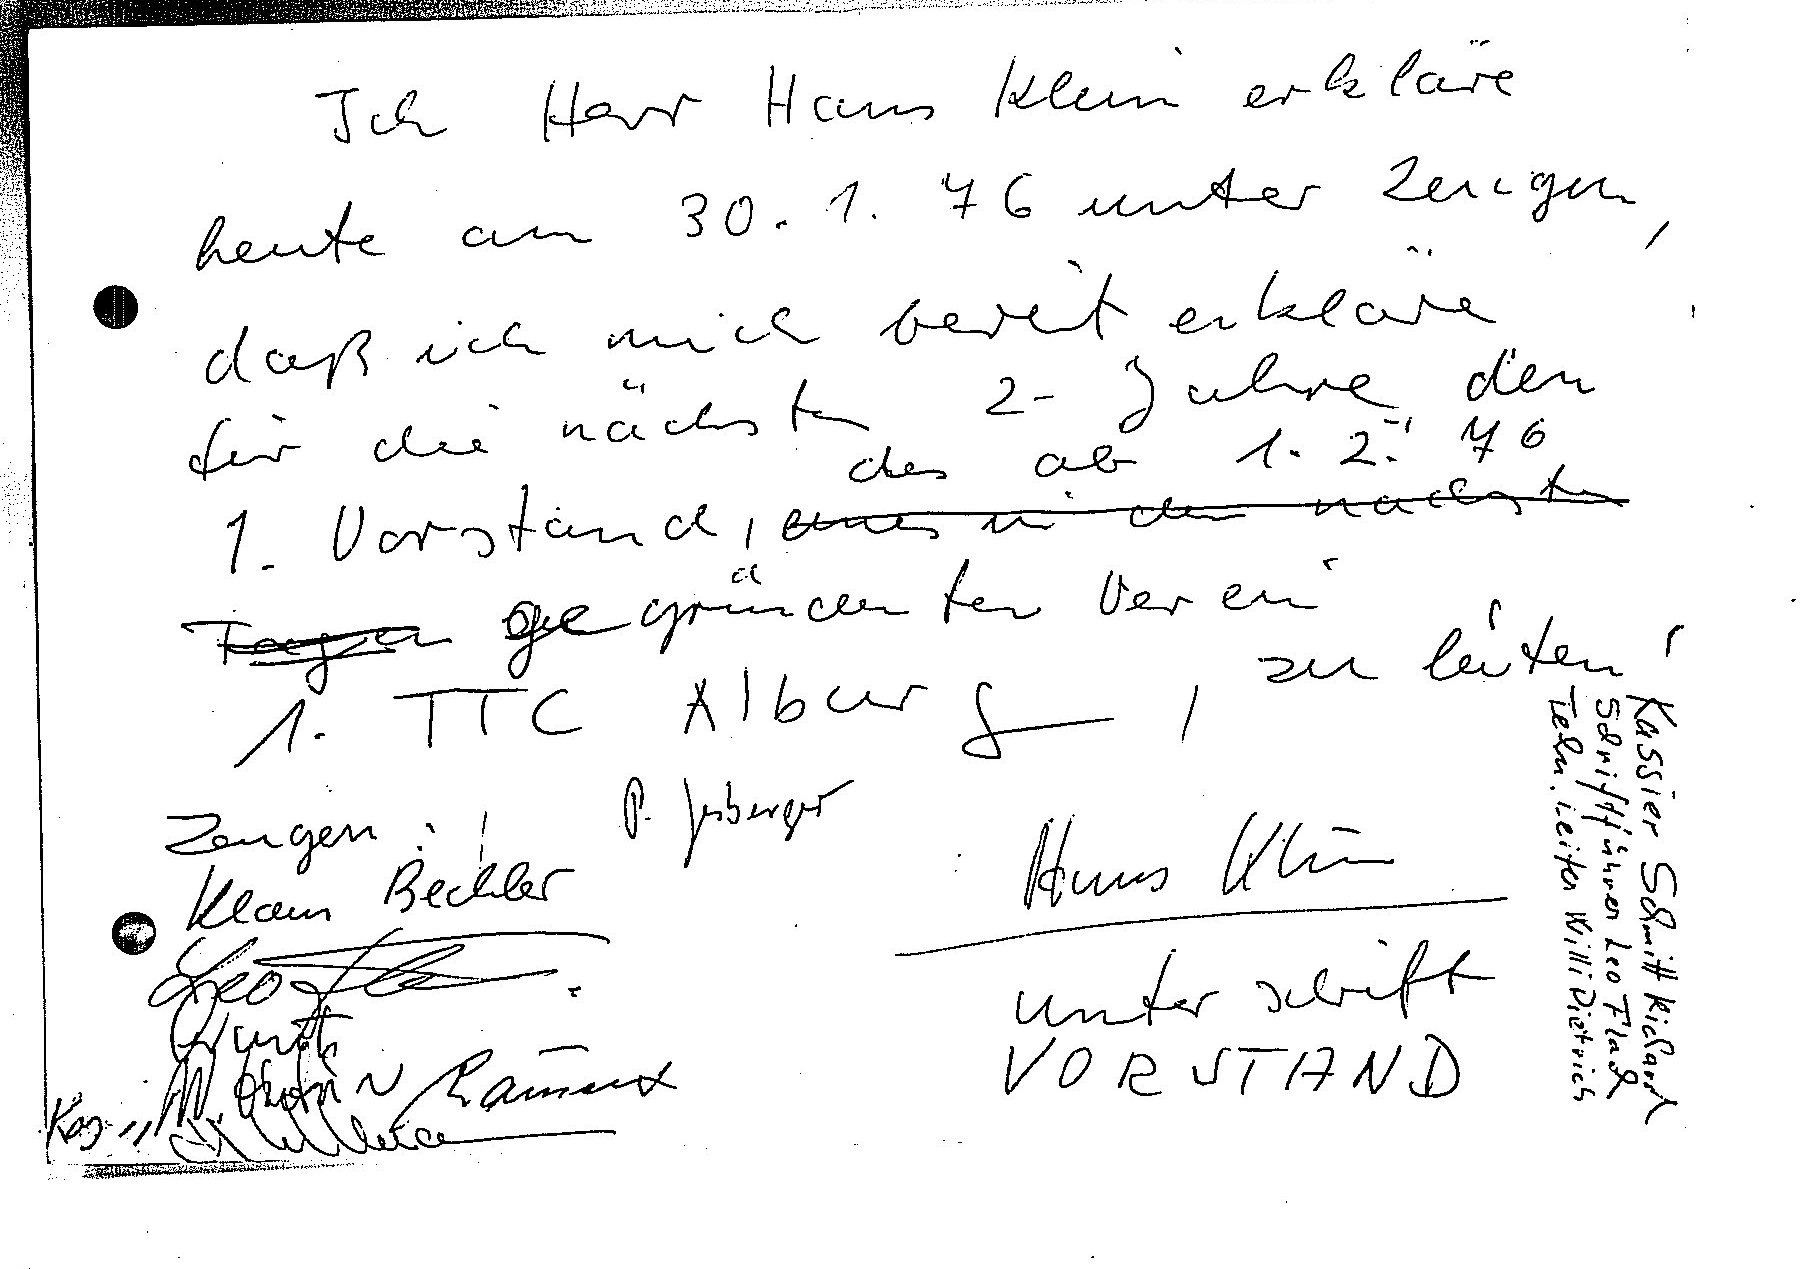 Ich Herr Hans Klein erkläre
heute am 30.1.76 unter Zeugen,
daß ich mich bereit erkläre
für die nächsten 2- Jahre den
des ab 1.2. 76
1. Vorstand, eines in den nächsten
Tagen gegründeten Verein
1. TTC Alburg, zu leiten!
Zeugen:
P. Jesberger
Klaus Bechler
Leo
Kurt
Hans Klein
Unterschrift
VORSTAND
Kassier Schmitt Richard
Schriftführer Leo Flach
Techn. Leiter Willi Dietrich